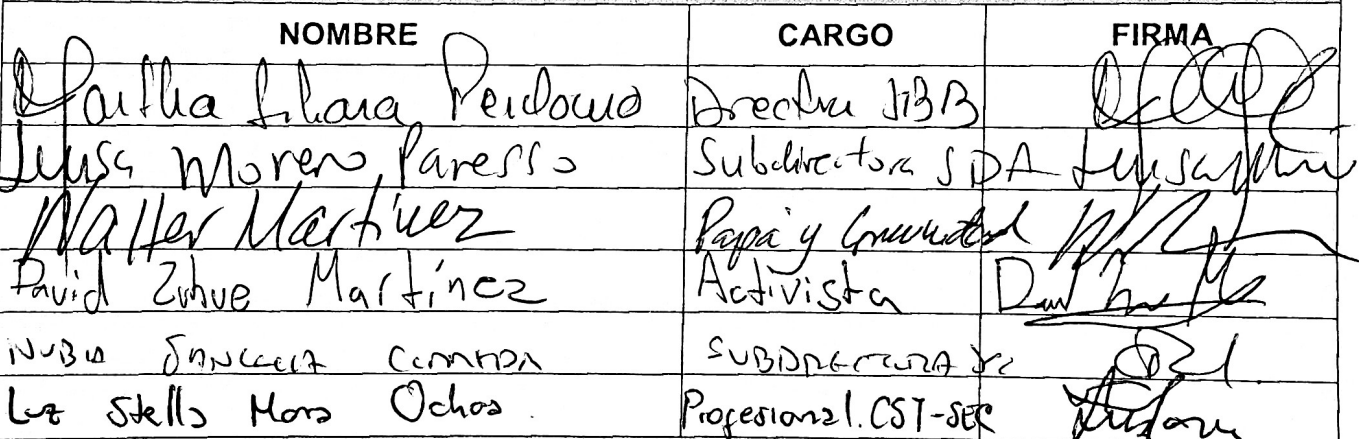 NOMBRE CARGO FIRMA
Martha Liliana Perdomo Directora JBB
Luisa Moreno Paresso Subdirectora SDA Luisa
Walter Martínez Papá y Comunidad
David Martínez Activista
NUBIA SUBDIRECTORA
Luz Stella Mora Ochoa. Profesional. CST-SER